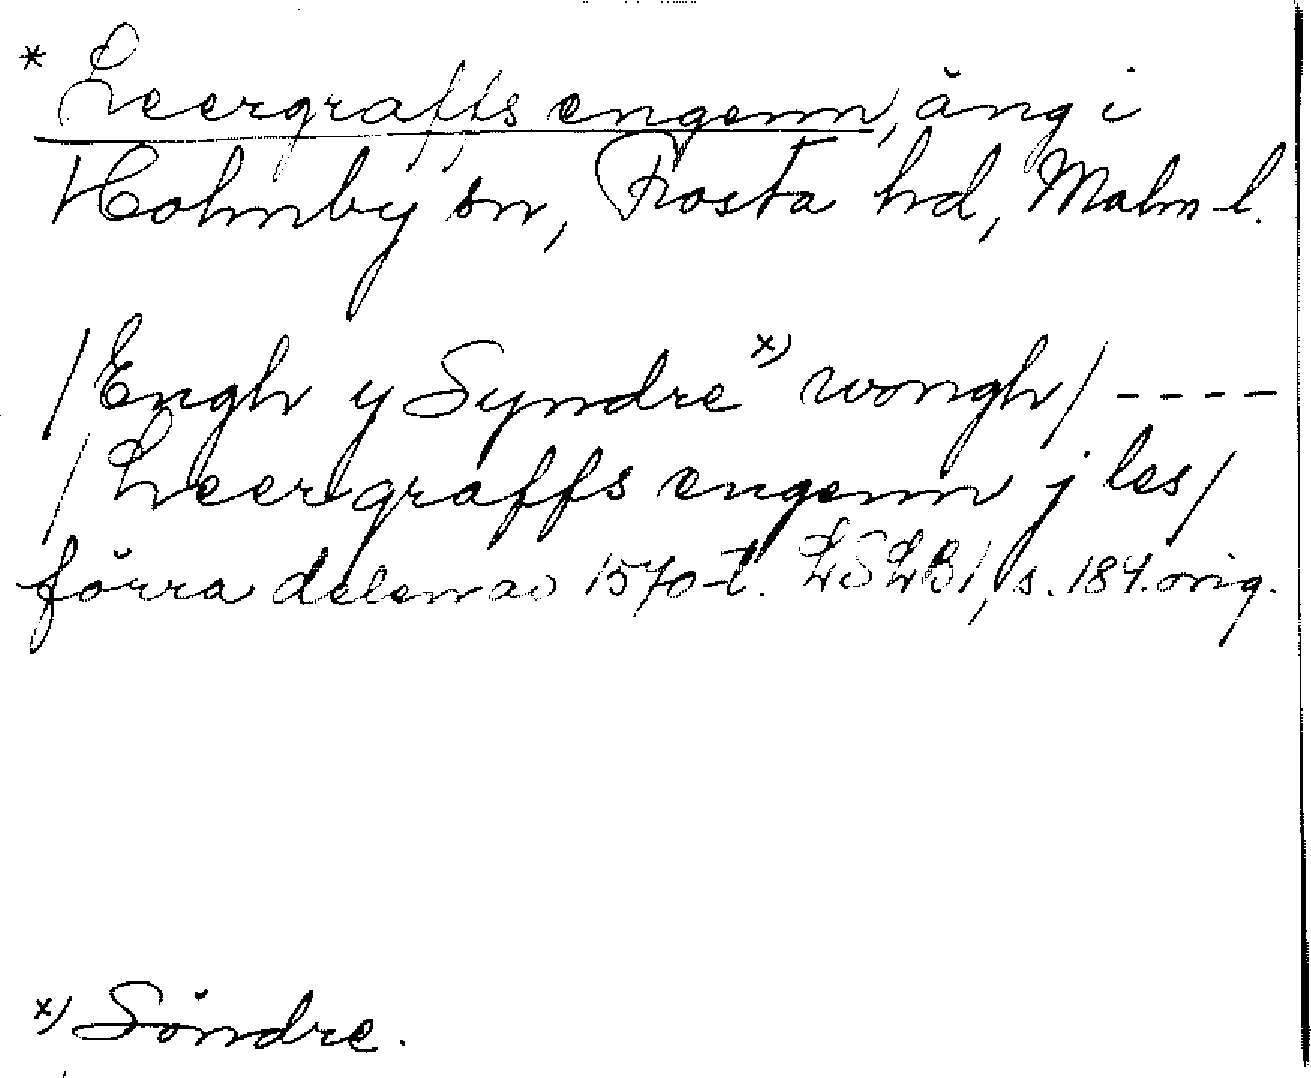 * Leergraffs engenn, äng i
Hohnby sn, Frosta hd, Malm l.
/Engh y Syndre x) wongh/ ----
/Leergraffs engenn j les/
förra delen av 1570-t. LSLB1, s. 184. orig.
x) Söndre.